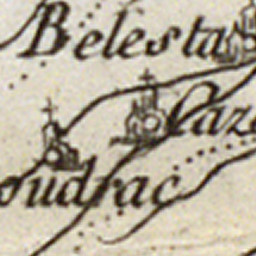 Belesta
Caze
oudrac